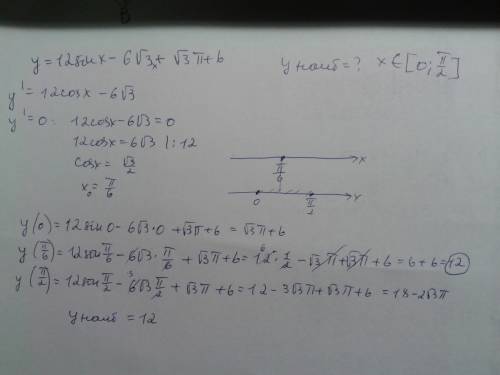 y = 12sinx − 6√3x + √3π + 6
y наиб = ? x ∈ [0; π/2]
y' = 12cosx − 6√3
y' = 0: 12cosx − 6√3 = 0
12cosx = 6√3 |: 12
cosx = √3/2
x₀ = π/6
x
π/6
0 π/2 x
y(0) = 12sin0 − 6√3·0 + √3π + 6 = √3π + 6
y(π/6) = 12sinπ/6 − 6√3·π/6 + √3π + 6 = 12·1/2 − √3π + √3π + 6 = 6 + 6 = 12
y(π/2) = 12sinπ/2 − 6√3π/2 + √3π + 6 = 12 − 3√3π + √3π + 6 = 18 − 2√3π
y наиб = 12